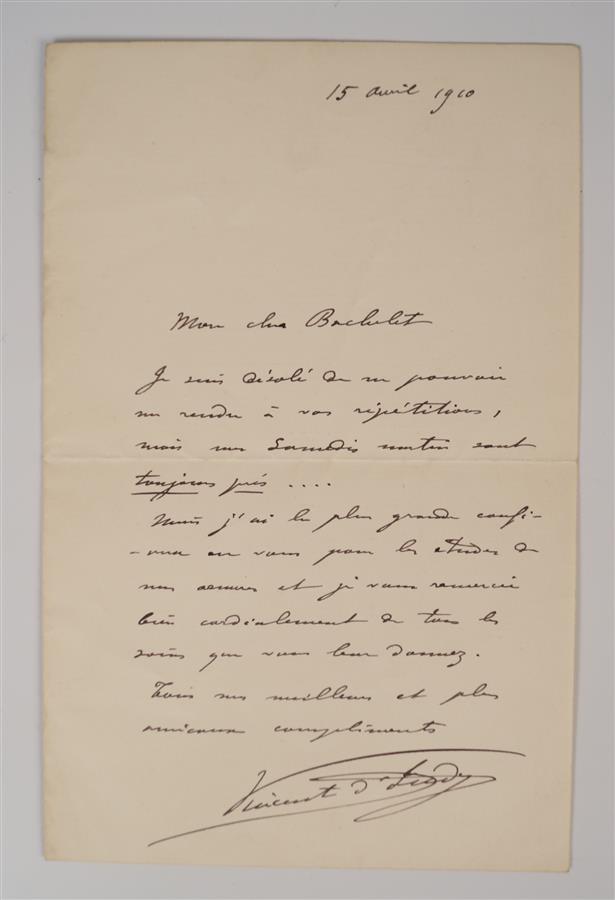 15 avril 1910
Mon cher Bachelet
Je suis désolé de ne pouvoir
me rendre à vos répétitions,
mais mes Samedis matin sont
toujours pris ....
Mais j'ai la plus grande confi-
-ance en vous pour les études de
mes œuvres et je vous remercie
bien cordialement de tous les
soins que vous leur donnez.
Tous mes meilleurs et plus
amicaux compliments
Vincent d'Indy